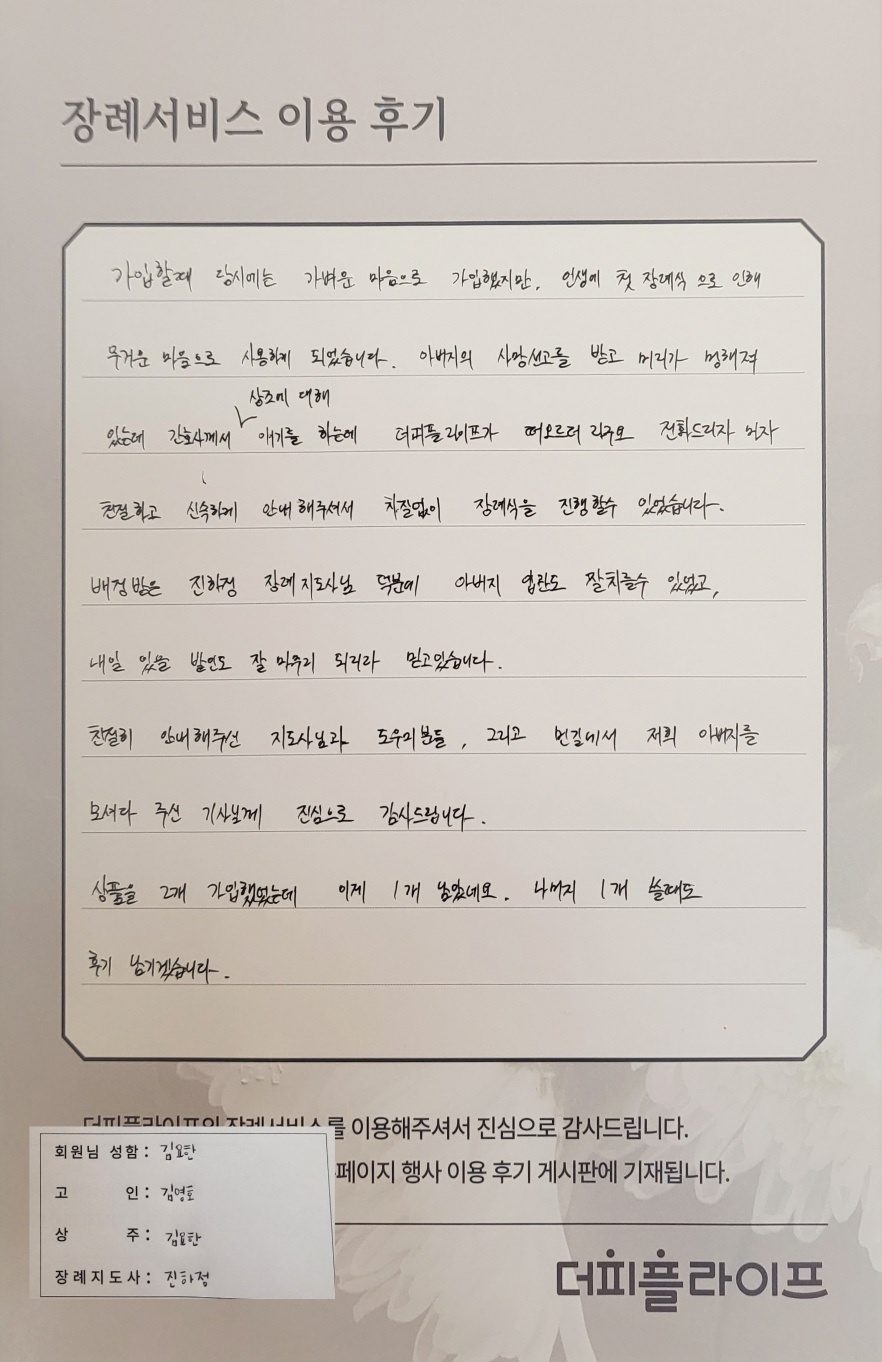 장례서비스 이용 후기
가입할때 당시에는 가벼운 마음으로 가입했지만, 인생에 첫 장례식 으로 인해
무거운 마음으로 사용하게 되었습니다. 아버지의 사망선고를 받고 머리가 멍해져
상조에 대해
있는데 간호사께서 얘기를 하는데 더피플라이프가 떠오르더라구요 전화드리자 마자
친절하고 신속하게 안내해주셔서 차질없이 장례식을 진행할수 있었습니다.
배정받은 진하정 장례지도사님 덕분에 아버지 입관도 잘치를수 있었고,
내일 있을 발인도 잘 마무리 되리라 믿고있습니다.
친절히 안내해주신 지도사님과 도우미분들, 그리고 먼길에서 저희 아버지를
모셔다 주신 기사님께 진심으로 감사드립니다.
상품을 2개 가입했었는데 이제 1개 남았네요. 나머지 1개 쓸때도
후기 남기겠습니다.
더피플라이프의 장례서비스를 이용해주셔서 진심으로 감사드립니다.
페이지 행사 이용 후기 게시판에 기재됩니다.
회원님 성함: 김요한
고 인: 김영호
상 주: 김요한
장례지도사: 진하정
더피플라이프